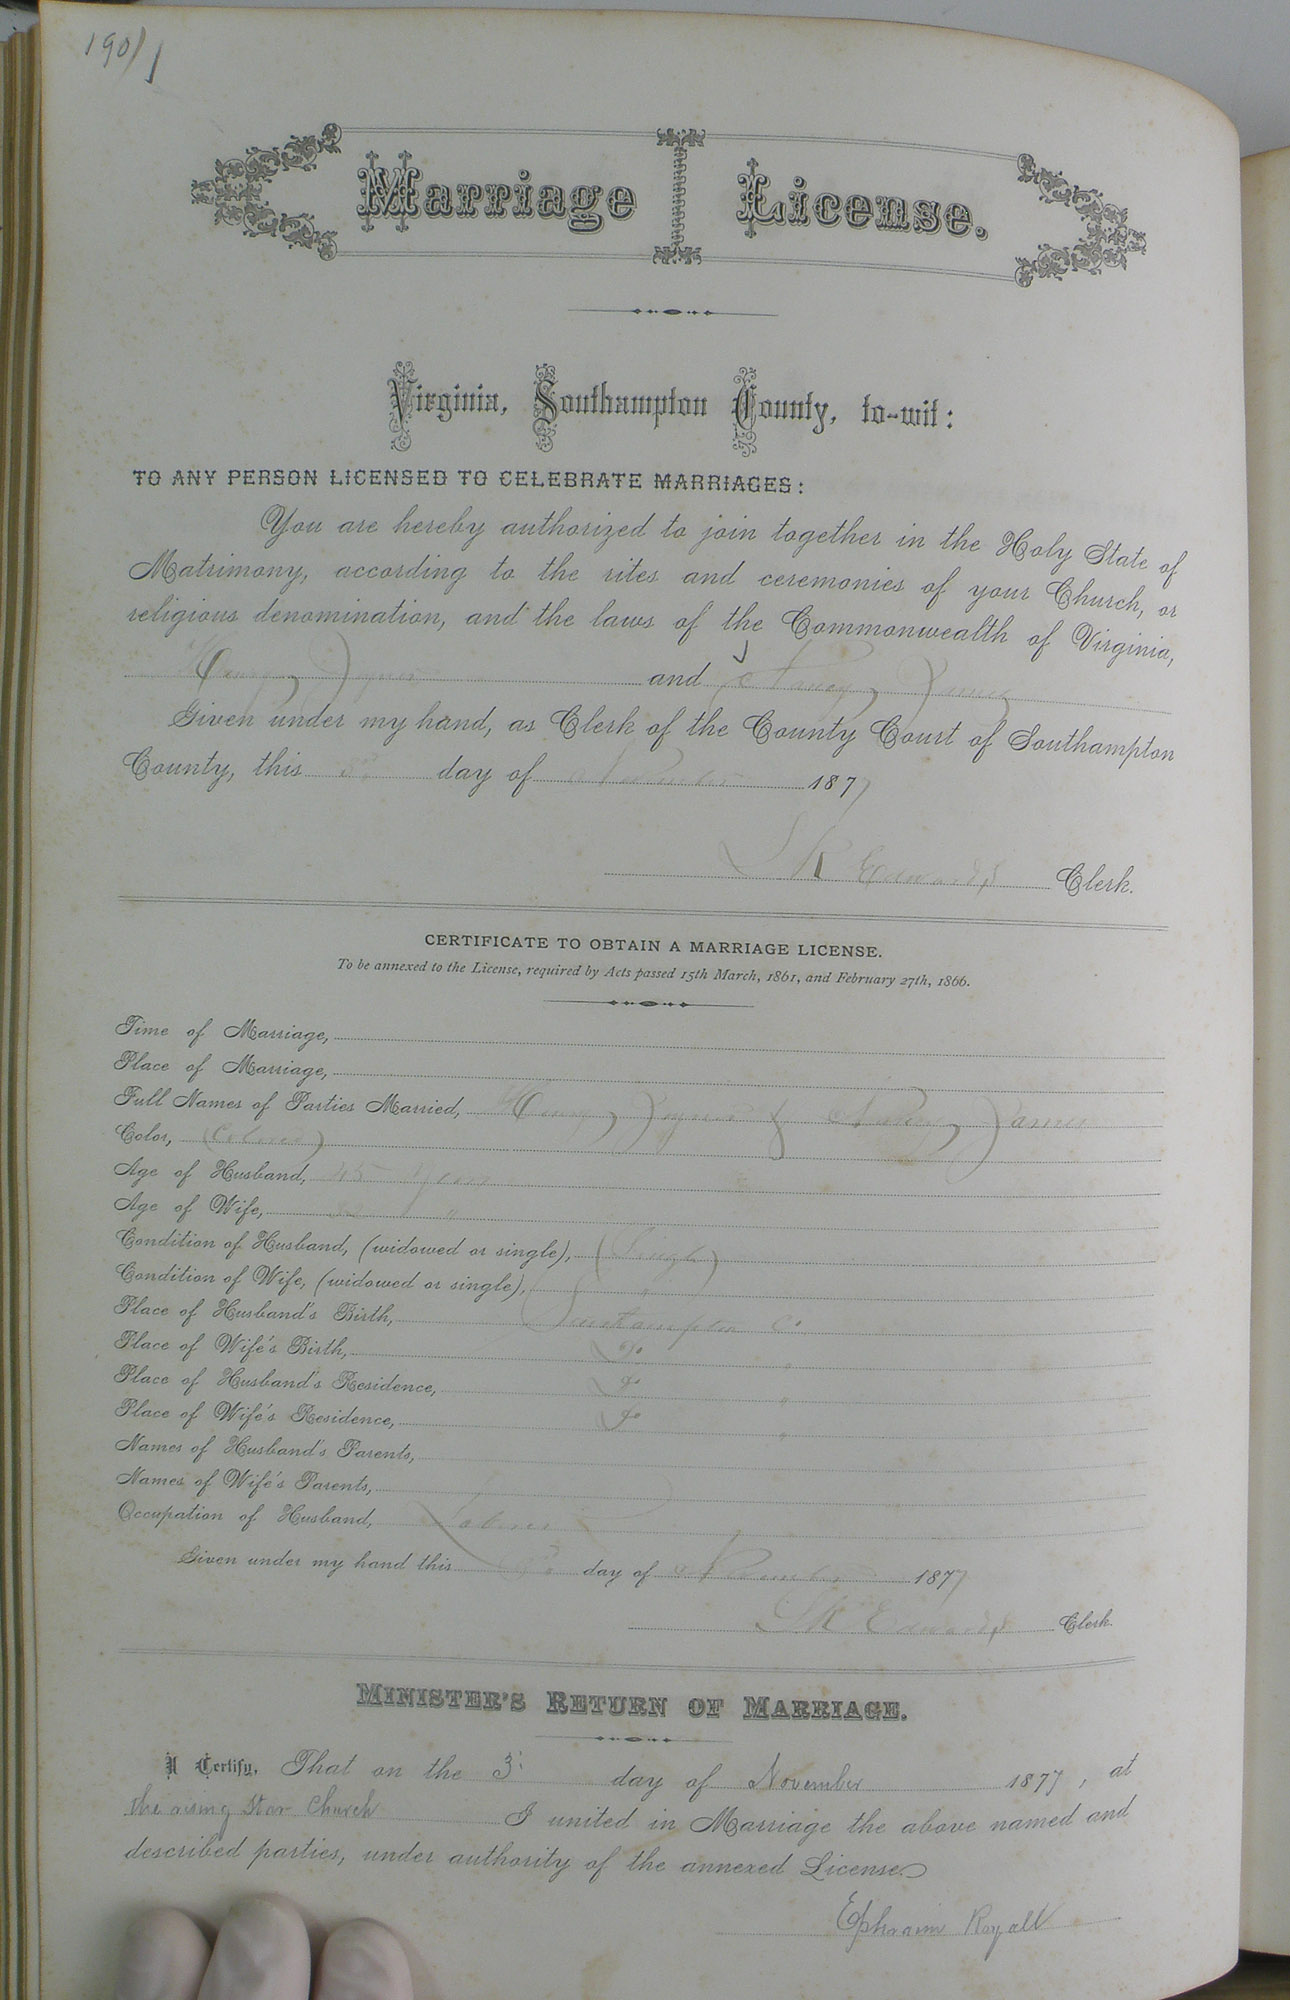 190
Marriage License.
Virginia, Southampton County, to-wit:
TO ANY PERSON LICENSED TO CELEBRATE MARRIAGES:
You are hereby authorized to join together in the Holy State of
Matrimony, according to the rites and ceremonies of your Church, or
religious denomination, and the laws of the Commonwealth of Virginia,
Henry Joyner and Nancy James
Given under my hand, as Clerk of the County Court of Southampton
County, this day of November 1877
L R Edwards Clerk.
CERTIFICATE TO OBTAIN A MARRIAGE LICENSE.
To be annexed to the License, required by Acts passed 15th March, 1861, and February 27th, 1866.
Time of Marriage,
Place of Marriage,
Full Names of Parties Married, Henry Joyner & Nancy James
Color, (Colored)
Age of Husband, 45 years
Age of Wife, "
Condition of Husband, (widowed or single), (Single)
Condition of Wife, (widowed or single), "
Place of Husband's Birth, Southampton Co
Place of Wife's Birth, Do "
Place of Husband's Residence, Do "
Place of Wife's Residence, Do "
Names of Husband's Parents,
Names of Wife's Parents,
Occupation of Husband, Laborer
Given under my hand this day of November 1877
L R Edwards Clerk.
MINISTER'S RETURN OF MARRIAGE.
I Certify, That on the 3 day of November 1877, at
the rising Star Church I united in Marriage the above named and
described parties, under authority of the annexed License.
Ephraim Royall